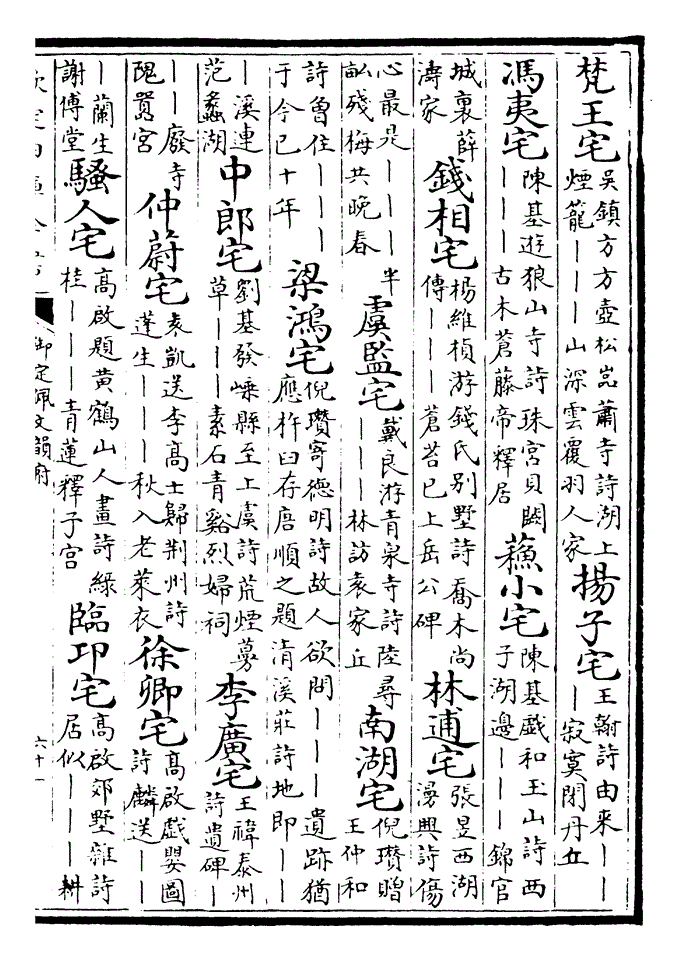 梵王宅吳鎮方方壺松嵓蕭寺詩湖上煙籠｜｜｜山深雲覆羽人家揚子宅王翰詩由来｜｜｜寂寞閉丹丘
馮夷宅陳基遊狼山寺詩珠宮貝闕｜｜｜古木蒼藤帝釋居蘓小宅陳基戲和玉山詩西子湖邊｜｜｜錦官
城裏薛濤家錢相宅楊維楨游錢氏别墅詩喬木尚傳｜｜｜蒼苔已上岳公碑林逋宅張昱西湖漫興詩傷
心最是｜｜｜半畝殘梅共晚春虞監宅戴良游青泉寺詩陸尋｜｜｜林訪袁家丘南湖宅倪瓚贈王仲和
詩魯住｜｜｜于今已十年梁鴻宅倪瓚寄德明詩故人欲問｜｜｜遺跡猶應杵臼存唐順之題清溪莊詩地即｜｜
｜溪連范蠡湖中郎宅劉基發嵊縣至上虞詩荒煙蔓草｜｜｜素石青谿烈婦祠李廣宅王禕泰州詩遺碑｜
｜｜廢寺隗囂宮仲蔚宅袁凱送李高士歸荆州詩蓬生｜｜｜秋入老萊衣徐卿宅高啟戲嬰圖詩麟送｜｜
｜蘭生謝傅堂騷人宅高啟題黄鶴山人畫詩緑桂｜｜｜青蓮釋子宮臨邛宅高啟郊墅雜詩居似｜｜｜耕
欽定四庫全書
御定佩文韻府